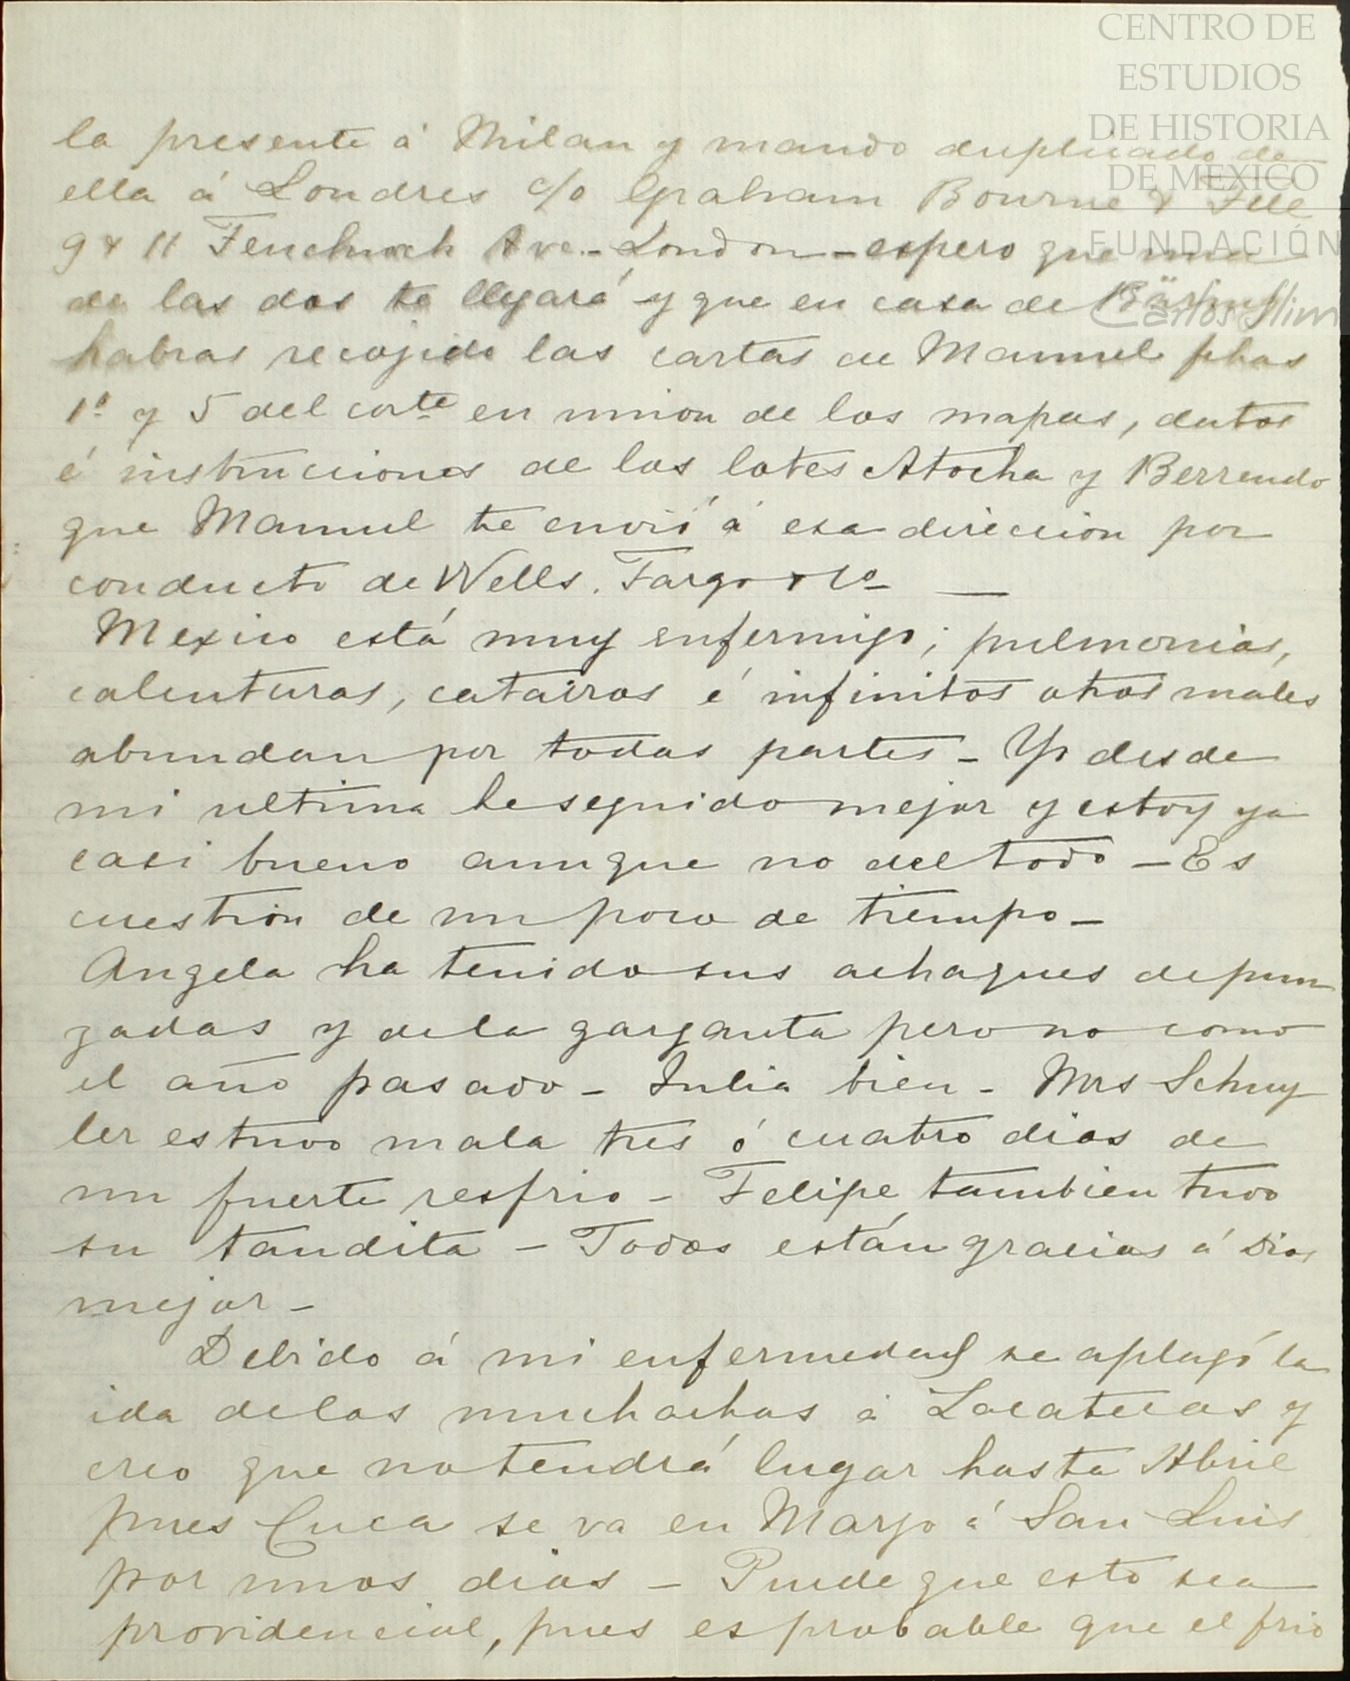 CENTRO DE
ESTUDIOS
DE HISTORIA
DE MEXICO
FUNDACIÓN
Carlos Slim
la presente á Milan y mando duplicado de
ella á Londres c/o Graham Bourne &
9 & 11 Fenchurch Ave. - London - espero que una
de las dos te llegará y que en casa de
habras recojido las cartas de Manuel fhas
1º y 5 del corte en union de los mapas, datos
é instrucciones de los lotes Atocha y Berrendo
que Manuel te envió á esa direccion por
conducto de Wells. Fargo & Co —
Mexico está muy enfermizo; pulmonias,
calenturas, catarros é infinitos otros males
abundan por todas partes - Yo desde
mi ultima he seguido mejor y estoy ya
casi bueno aunque no del todo - Es
cuestion de un poco de tiempo -
Angela ha tenido sus achaques de pun
zadas y de la garganta pero no como
el año pasado - Julia bien - Mrs Schuy
ler estuvo mala tres ó cuatro dias de
un fuerte resfrio - Felipe tambien tuvo
su tandita - Todos están gracias á Dios
mejor -
Debido á mi enfermedad se aplazó la
ida de los muchachos á Zacatecas y
creo que no tendrá lugar hasta Abril
pues Cuca se va en Marzo á San Luis
por unos dias - Puede que esto sea
providencial, pues es probable que el frio